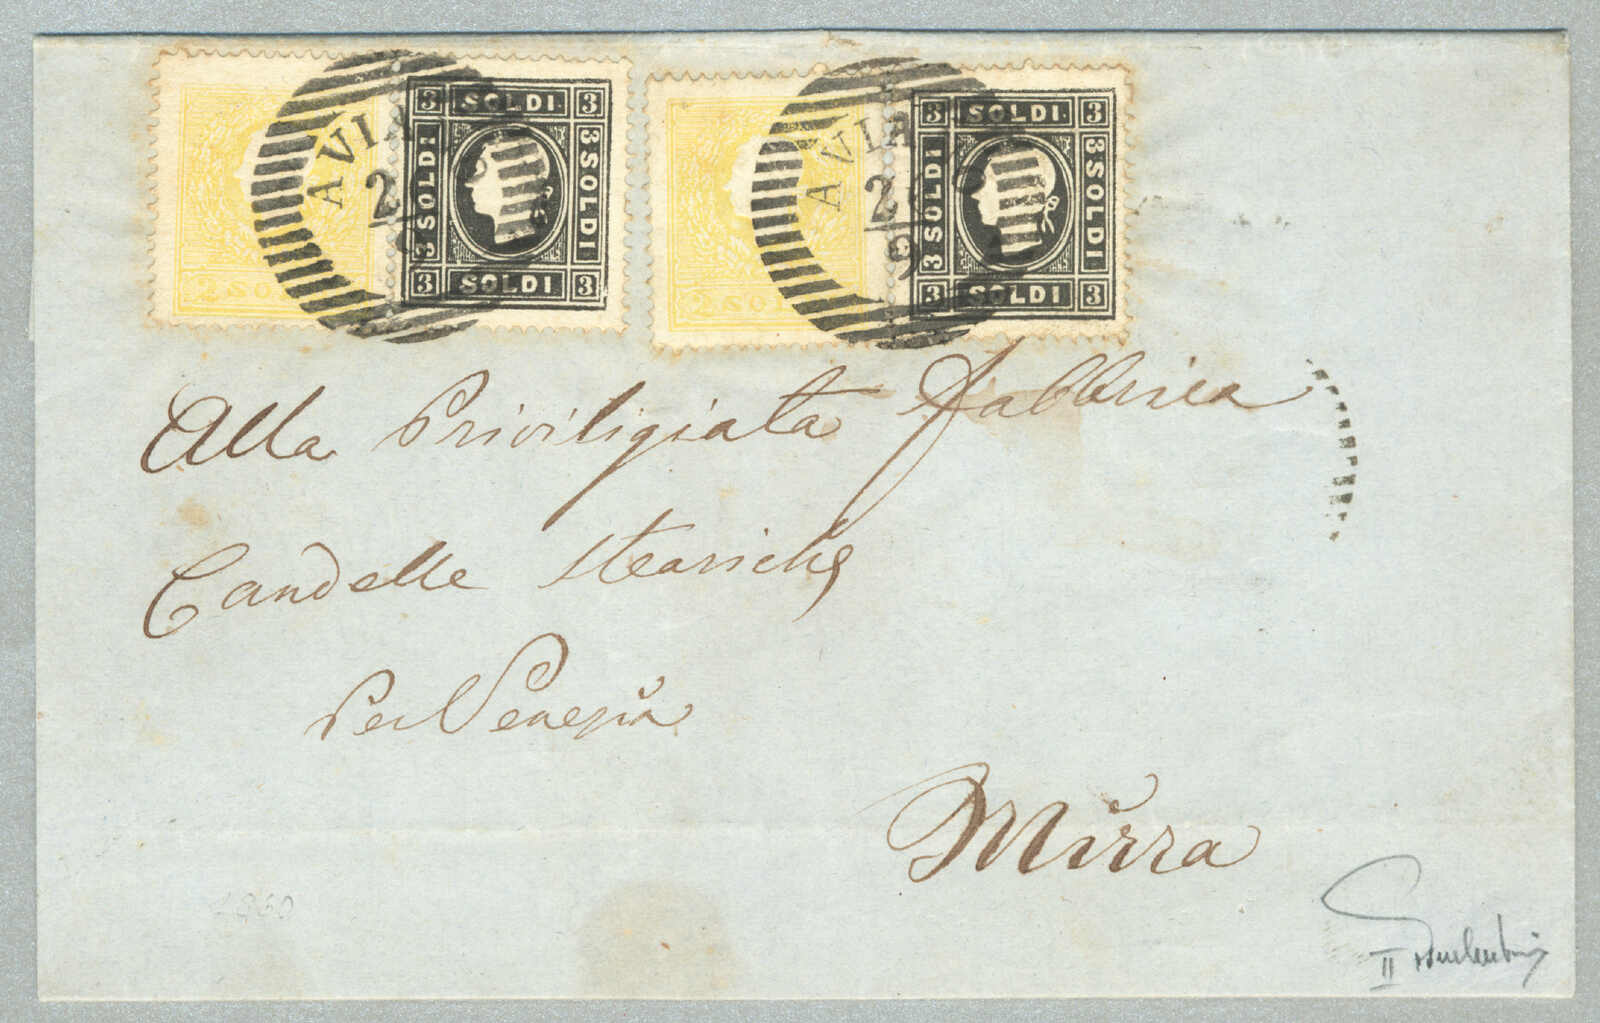 2 SOLDI
3 SOLDI 3
3 SOLDI
3 SOLDI
3 SOLDI 3
2 SOLDI
3 SOLDI 3
3 SOLDI
3 SOLDI
3 SOLDI 3
AVIA
2
AVIA
2
9
Alla Priviligiata Fabbrica
Candelle Steariche
Per Venezia
Mirra
1860
II